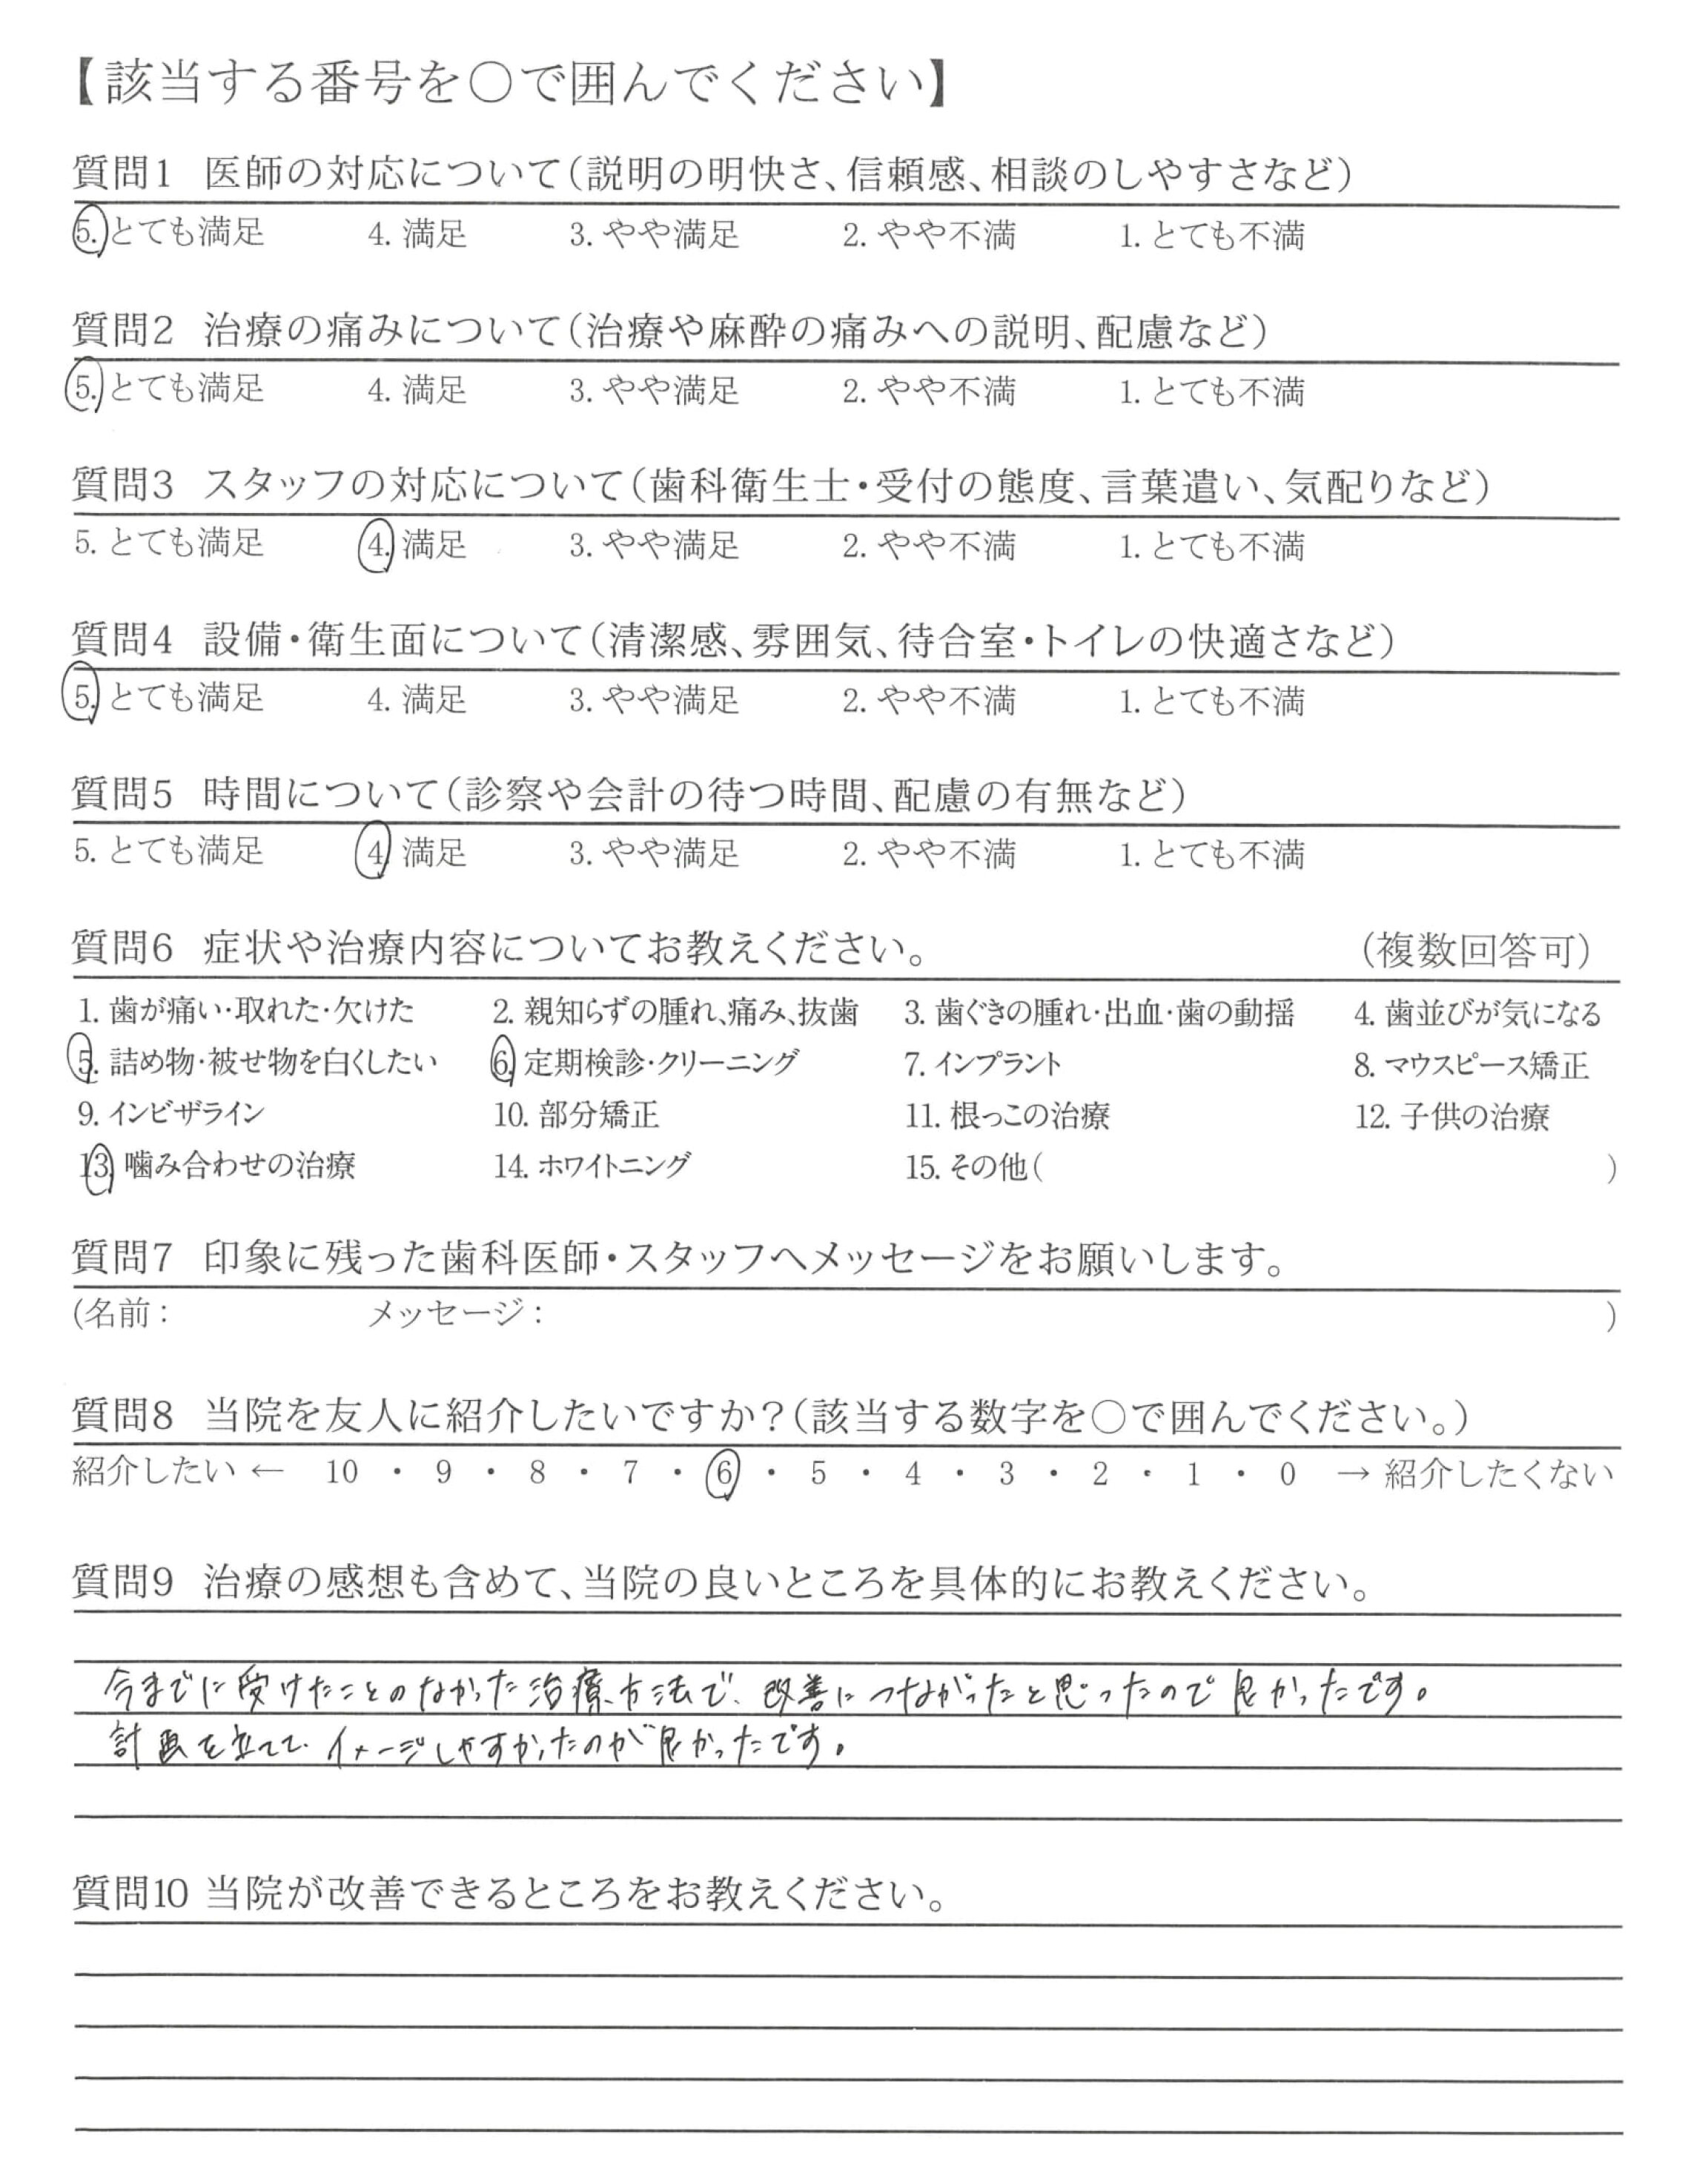 【該当する番号を○で囲んでください】
質問1 医師の対応について(説明の明快さ、信頼感、相談のしやすさなど)
5. とても満足 4. 満足 3. やや満足 2. やや不満 1. とても不満
質問2 治療の痛みについて(治療や麻酔の痛みへの説明、配慮など)
5. とても満足 4. 満足 3. やや満足 2. やや不満 1. とても不満
質問3 スタッフの対応について(歯科衛生士・受付の態度、言葉遣い、気配りなど)
5. とても満足 4. 満足 3. やや満足 2. やや不満 1. とても不満
質問4 設備・衛生面について(清潔感、雰囲気、待合室・トイレの快適さなど)
5. とても満足 4. 満足 3. やや満足 2. やや不満 1. とても不満
質問5 時間について(診察や会計の待つ時間、配慮の有無など)
5. とても満足 4. 満足 3. やや満足 2. やや不満 1. とても不満
質問6 症状や治療内容についてお教えください。 (複数回答可)
1. 歯が痛い・取れた・欠けた 2. 親知らずの腫れ、痛み、抜歯 3. 歯ぐきの腫れ・出血・歯の動揺 4. 歯並びが気になる
5. 詰め物・被せ物を白くしたい 6. 定期検診・クリーニング 7. インプラント 8. マウスピース矯正
9. インビザライン 10. 部分矯正 11. 根っこの治療 12. 子供の治療
13. 噛み合わせの治療 14. ホワイトニング 15. その他( )
質問7 印象に残った歯科医師・スタッフへメッセージをお願いします。
(名前: メッセージ: )
質問8 当院を友人に紹介したいですか?(該当する数字を○で囲んでください。)
紹介したい ← 10 ・ 9 ・ 8 ・ 7 ・ 6 ・ 5 ・ 4 ・ 3 ・ 2 ・ 1 ・ 0 → 紹介したくない
質問9 治療の感想も含めて、当院の良いところを具体的にお教えください。
今までに受けたことのなかった治療方法で、改善につながったと思ったので良かったです。
計画を立てて、イメージしやすかったのが良かったです。
質問10 当院が改善できるところをお教えください。